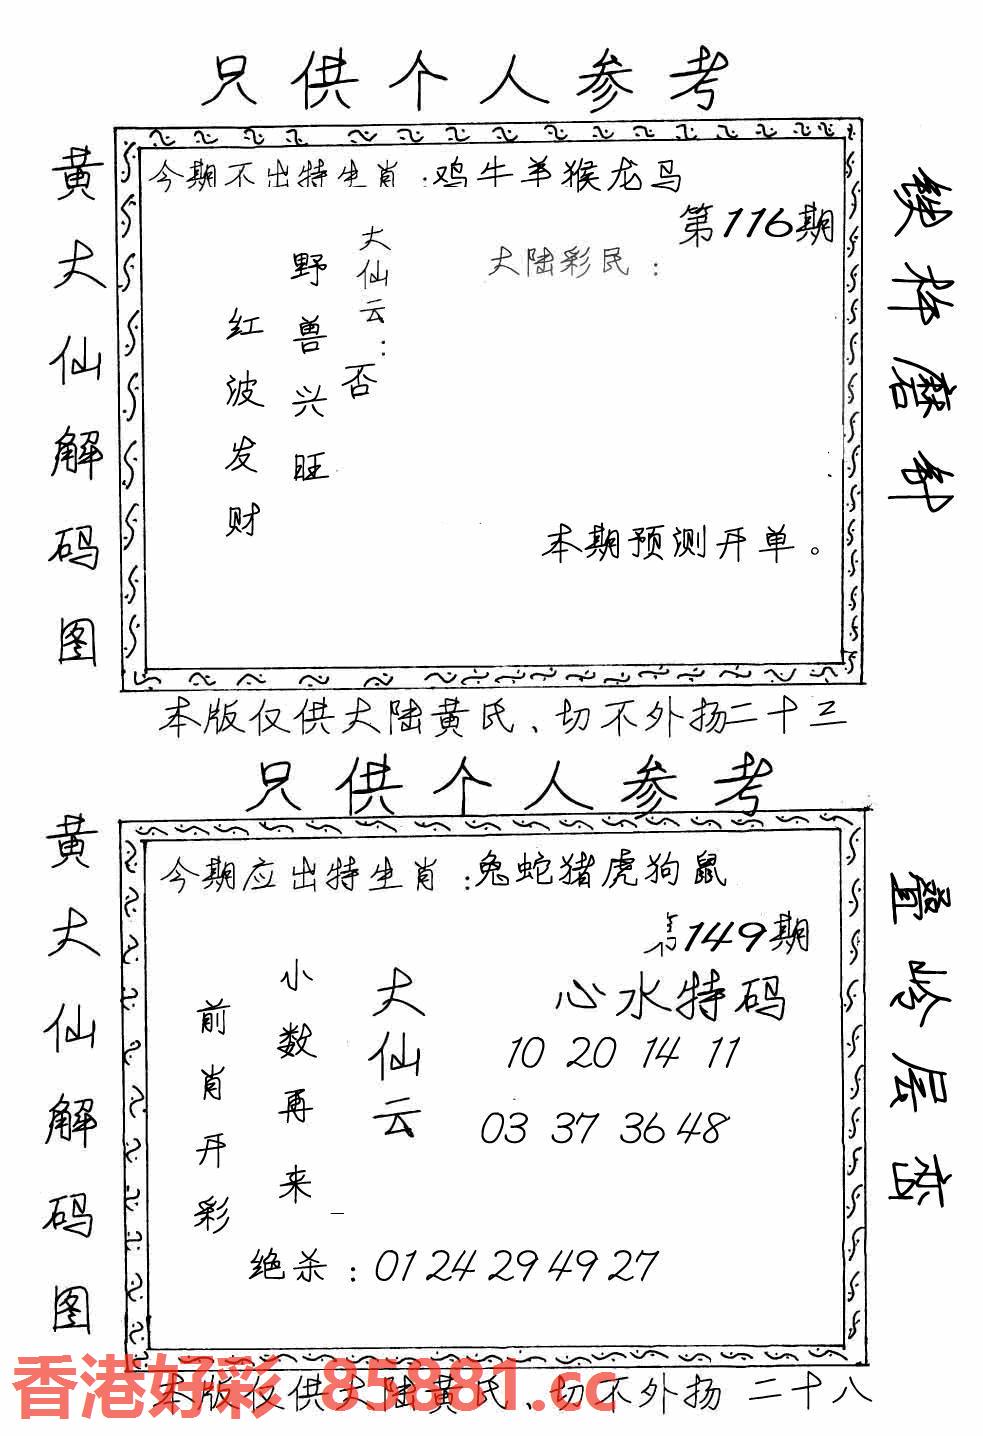 只供个人参考
黄大仙解码图
今期不出特生肖:鸡牛羊猴龙马
第116期
大陆彩民:
大仙云:
否
野兽兴旺
红波发财
本期预测开单。
铁杵磨针
本版仅供大陆黄氏、切不外扬二十三
只供个人参考
黄大仙解码图
今期应出特生肖:兔蛇猪虎狗鼠
第149期
心水特码
10 20 14 11
03 37 36 48
大仙云
小数再来
前肖开彩
绝杀:01 24 29 49 27
叠岭层峦
本版仅供大陆黄氏、切不外扬 二十八
香港好彩 85881.cc